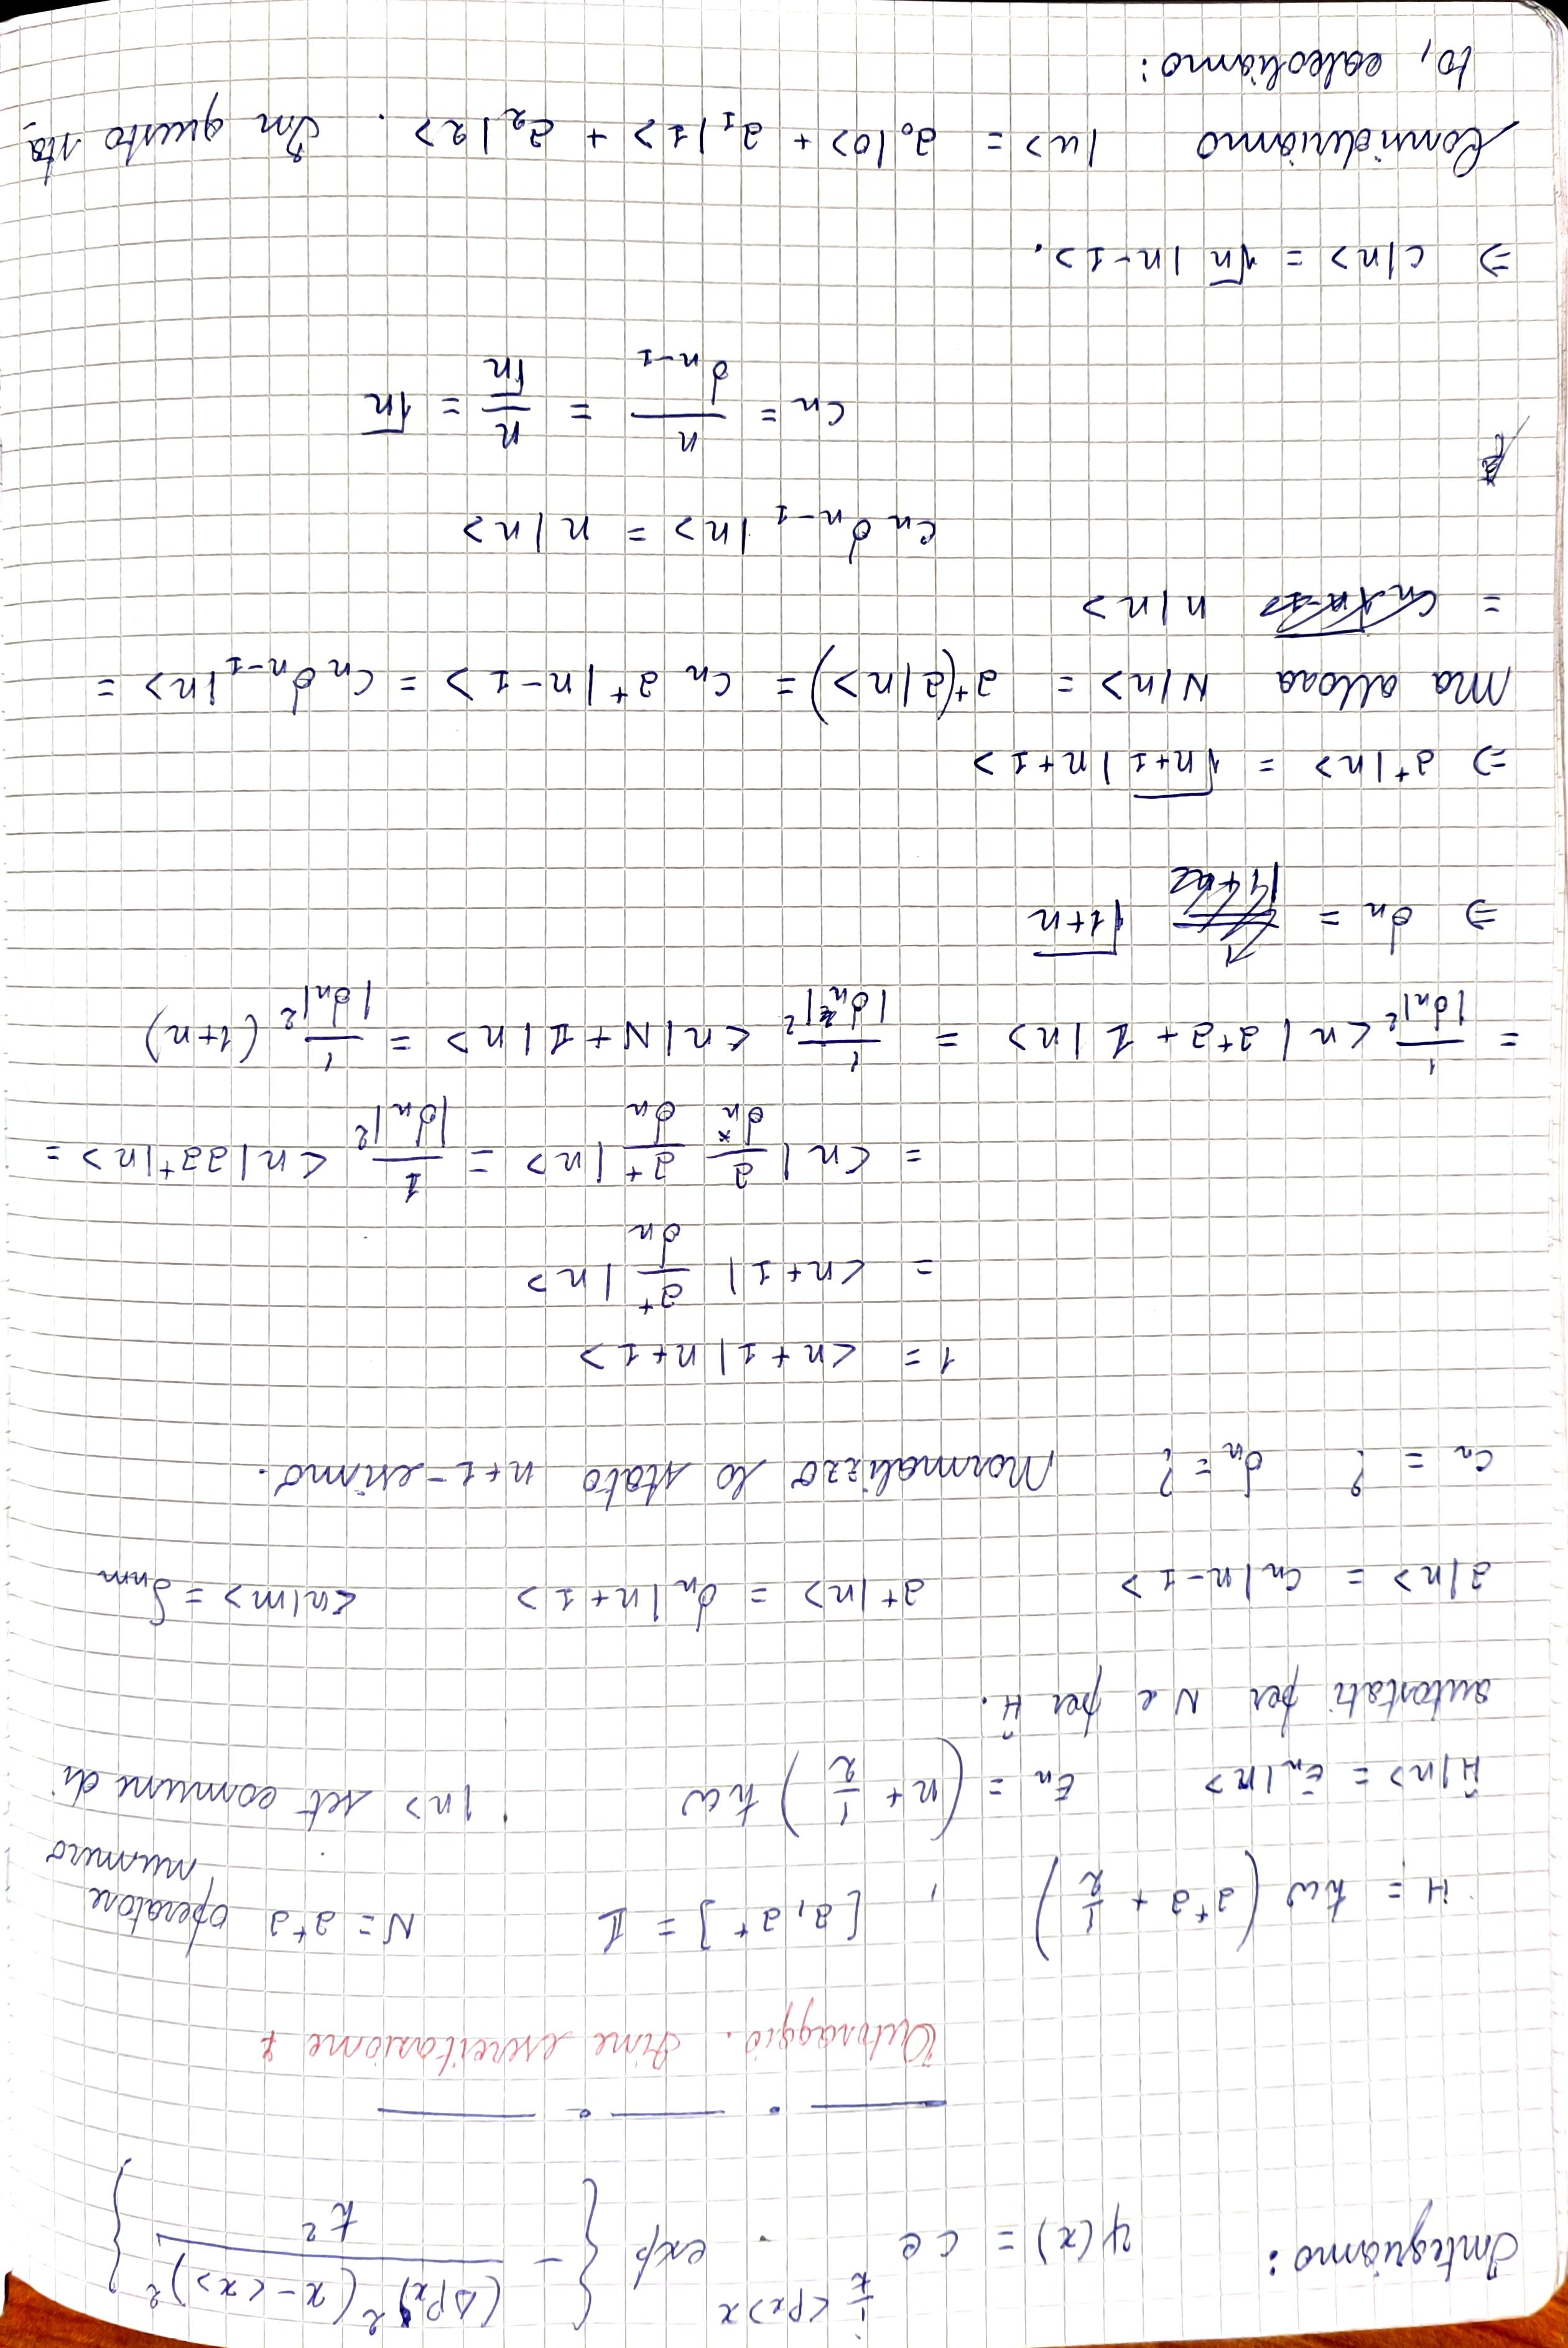 Integriamo: ψ(x) = c e^{i/ħ <px> x} · exp { - (Δpx)² (x - <x>)² / ħ² }
Tutoraggio. Fine esercitazione 7
H = ħω (a⁺a + 1/2) , [a, a⁺] = 1 N = a⁺a operatore
numero
Ĥ|n> = En|n> En = (n + 1/2) ħω |n> set comune di
autostati per N e per Ĥ.
a|n> = cn|n-1> a⁺|n> = dn|n+1> <n|m> = δnm
cn = ? dn = ? Normalizzo lo stato n+1-esimo.
1 = <n+1|n+1>
= <n+1| a⁺/dn |n>
= <n| a/dn* a⁺/dn |n> = 1/|dn|² <n|aa⁺|n> =
= 1/|dn|² <n| a⁺a + 1 |n> = 1/|dn|² <n|N+1|n> = 1/|dn|² (1+n)
⇒ dn = √(1+n)
⇒ a⁺|n> = √(n+1) |n+1>
Ma allora N|n> = a⁺(a|n>) = cn a⁺|n-1> = cn dn-1 |n> =
= n|n>
cn dn-1 |n> = n|n>
cn = n/dn-1 = n/√n = √n
⇒ c|n> = √n |n-1>.
Consideriamo |u> = a₀|0> + a₁|1> + a₂|2>. In questo sta-
to, calcoliamo: